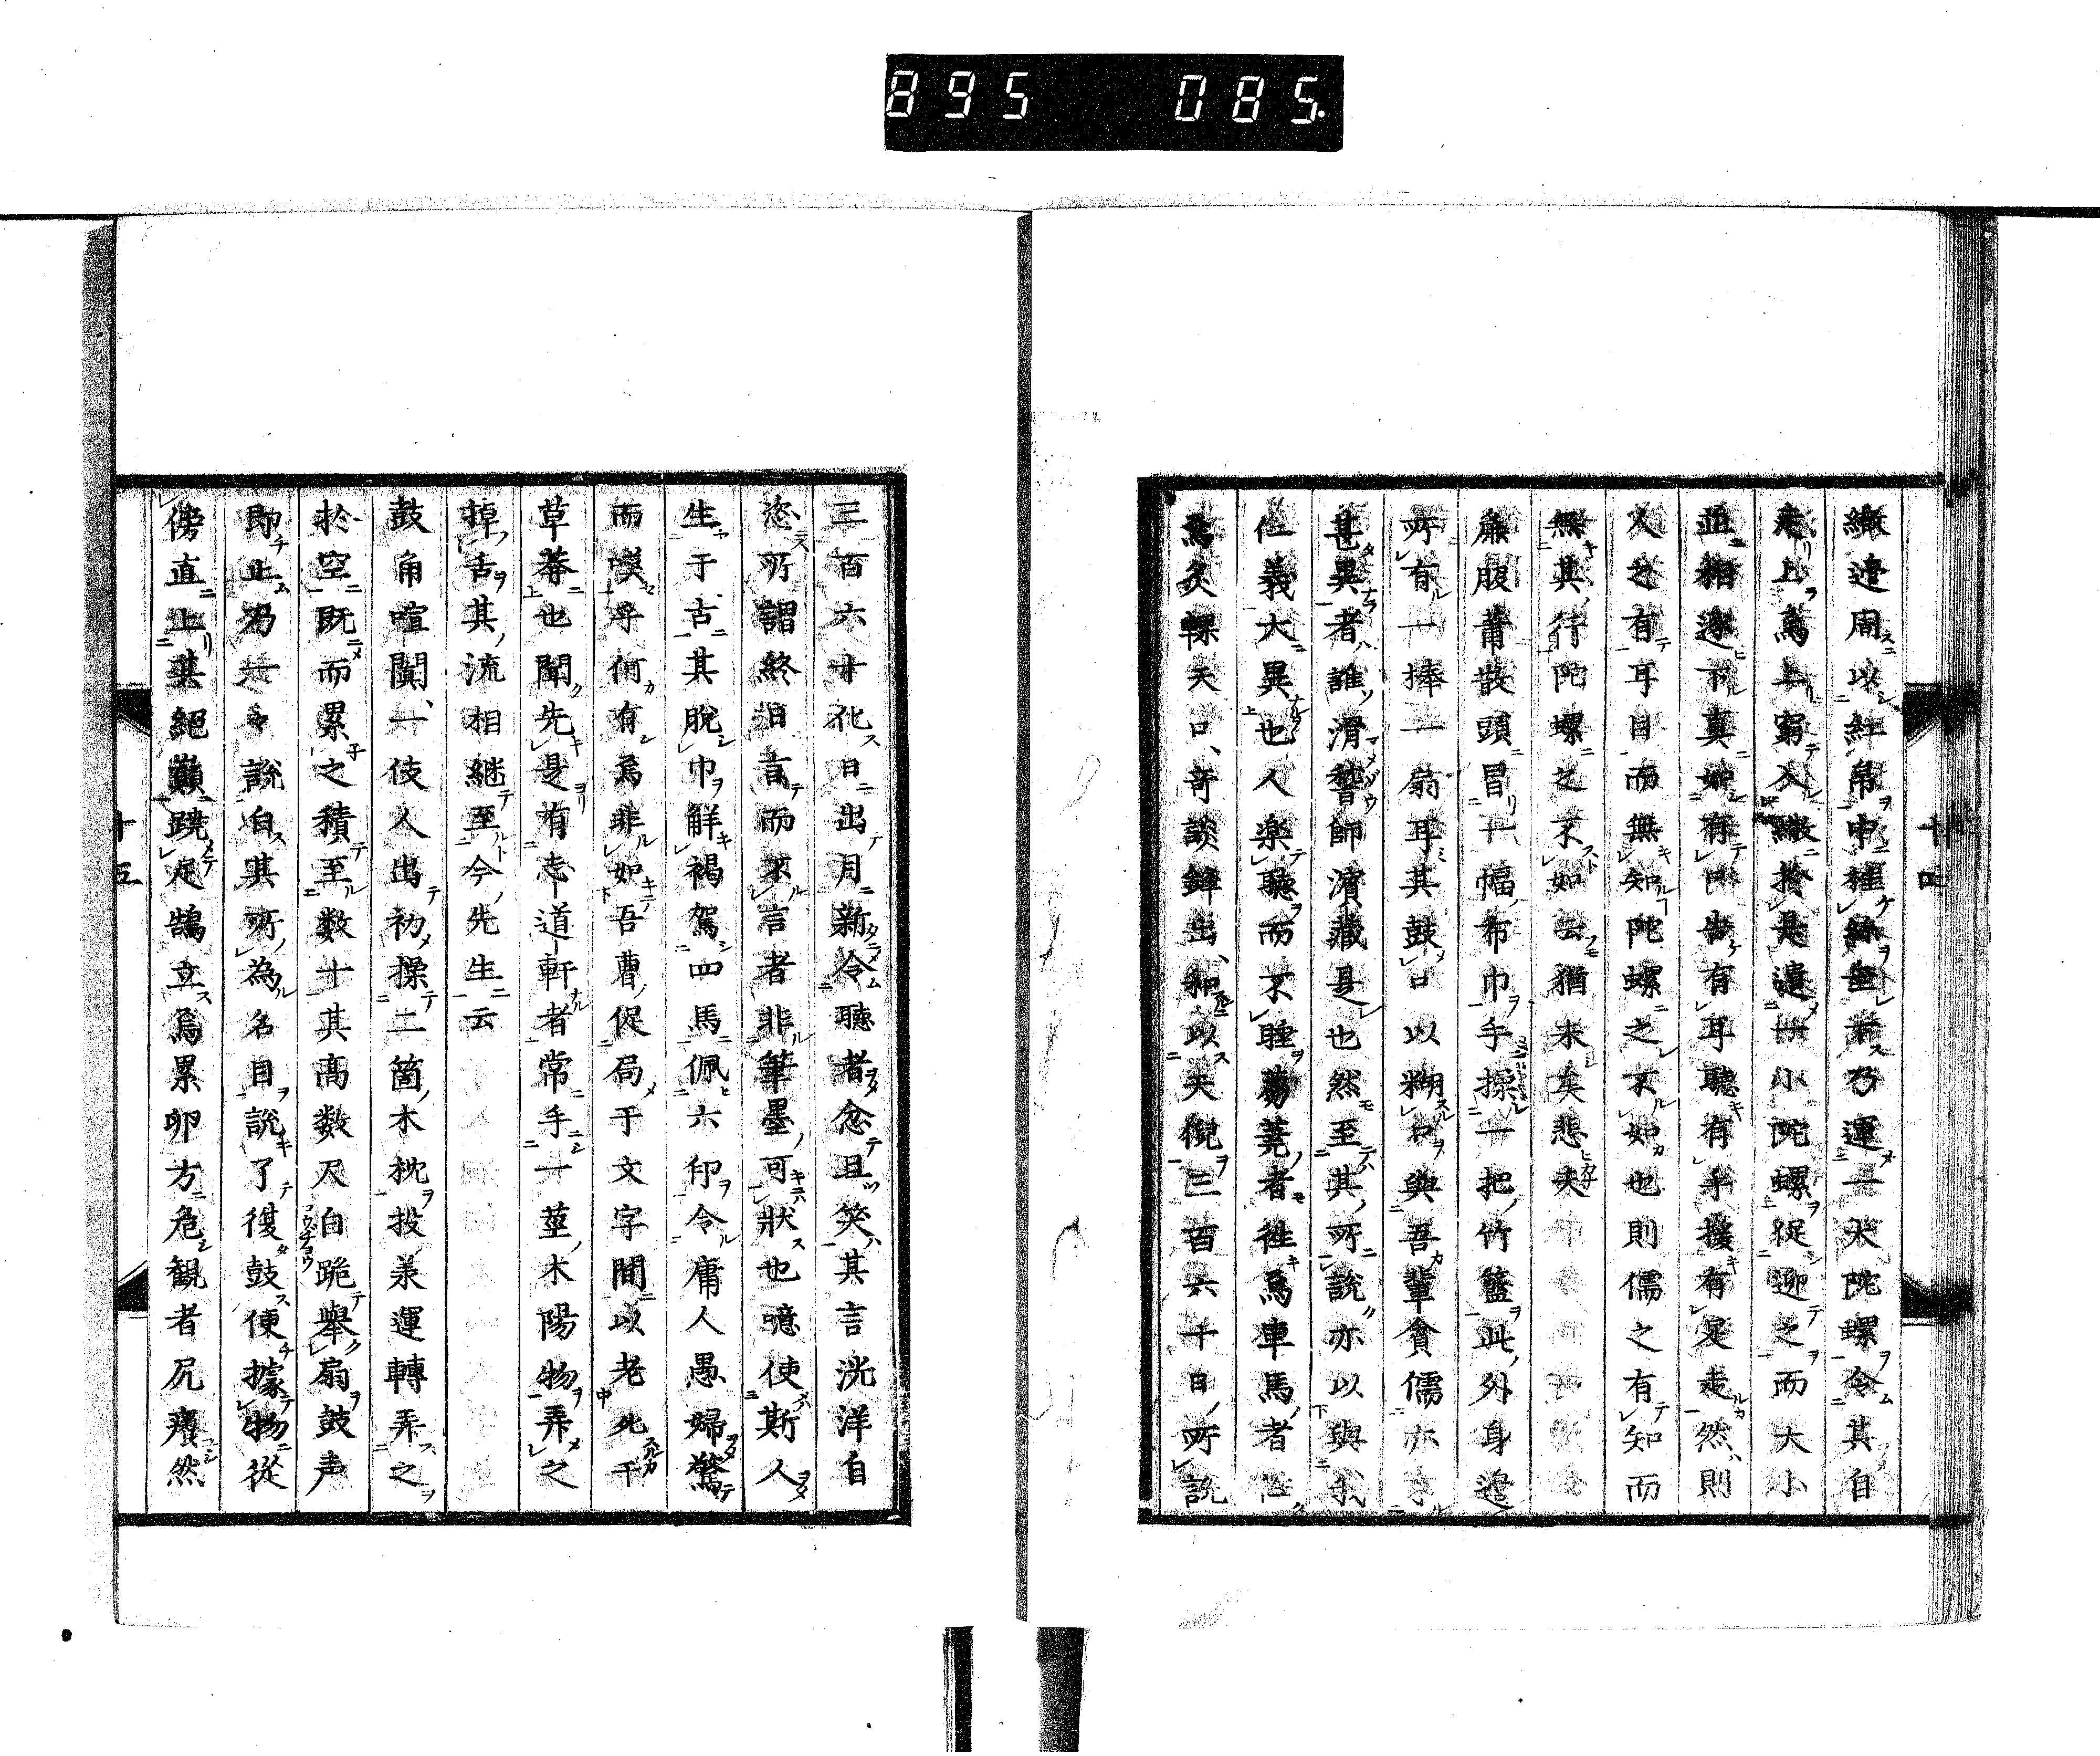 895 085.
繖邉周以紅帛中種紛垂者乃運一大陀螺令其自
走上焉上窮入繖於是遣一小陀螺從迎之而大小
並相逐下真如有口告有耳聴有手援有足走然則
人之有耳目而無知陀螺之不如也則儒之有知而
無其行陀螺之不如云猶未矣悲夫
腹蕭散頭冒一幅布巾手操一把竹籃此外身邉
所有一捧一扇耳其鼓口以糊口與吾輩貧儒亦
甚異者誰滑稽師濱蔵是也然至其所説亦以與
仁義大異也人楽聴而不睡芻蕘者往焉車馬者
焉炙輠天口奇談鋒出和以天倪三百六十日所説
十四
三百六十化日出月新令聴者念且笑其言洸洋自
恣所謂終日言而不言者非筆墨可狀也噫使斯人
生于古其脱巾解褐駕四馬佩六印令庸人愚婦驚
而嘆寻何有焉非如吾曹促局于文字間以老死干
草莽也聞先是有志道軒者常手一莖木陽物弄之
掉舌其流相継至今先生云
鼓角喧闐一伎人出初操二箇木枕投承運轉弄之
於空既而累之積至数十其高数尺白跪舉扇鼓声
即止乃一々説白其所為名目説了復鼓使據物従
傍直上其絶巓蹺足鵠立焉累卵方危観者尻癢然
十五